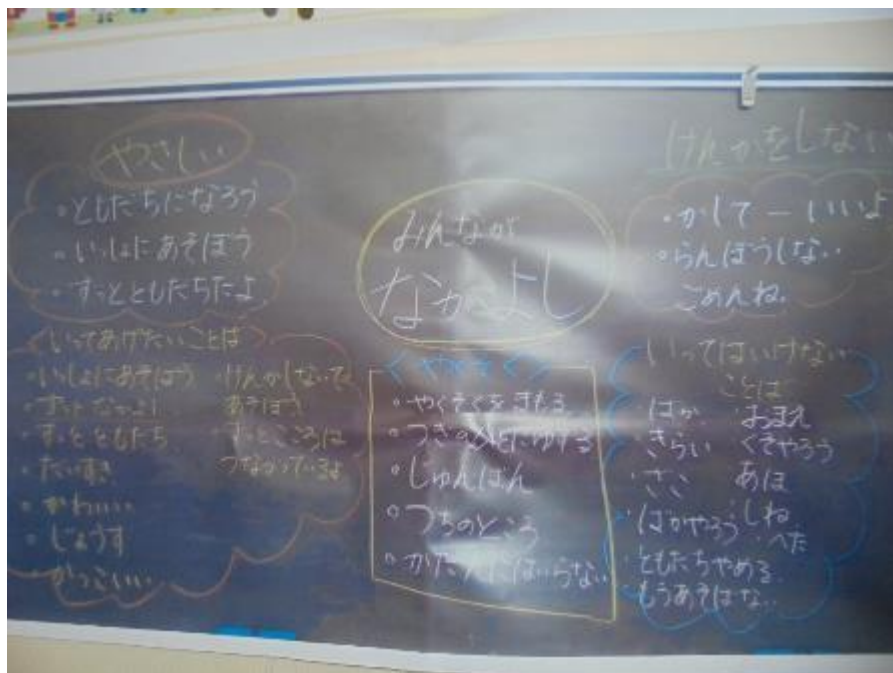 やさしい
・ともだちになろう
・いっしょにあそぼう
・ずっとともだちだよ
<いってあげたいことば>
・いっしょにあそぼう
・ずっとなかよし
・ずっとともだち
・だいすき
・かわいい
・じょうず
・かっこいい
・けんかしないで
あそぼう
・ずっとこころは
つながっているよ
みんなが
なかよし
<やくそく>
・やくそくをまもる
・つぎのひとにゆずる
・じゅんばん
・つちのところ
けんかをしない
・かして ー いいよ
・らんぼうしない
ごめんね。
いってはいけない
ことば
・ばか
・きらい
・ばかやろう
・ともだちやめる
・おまえ
くそやろう
あほ
・しね
・へた